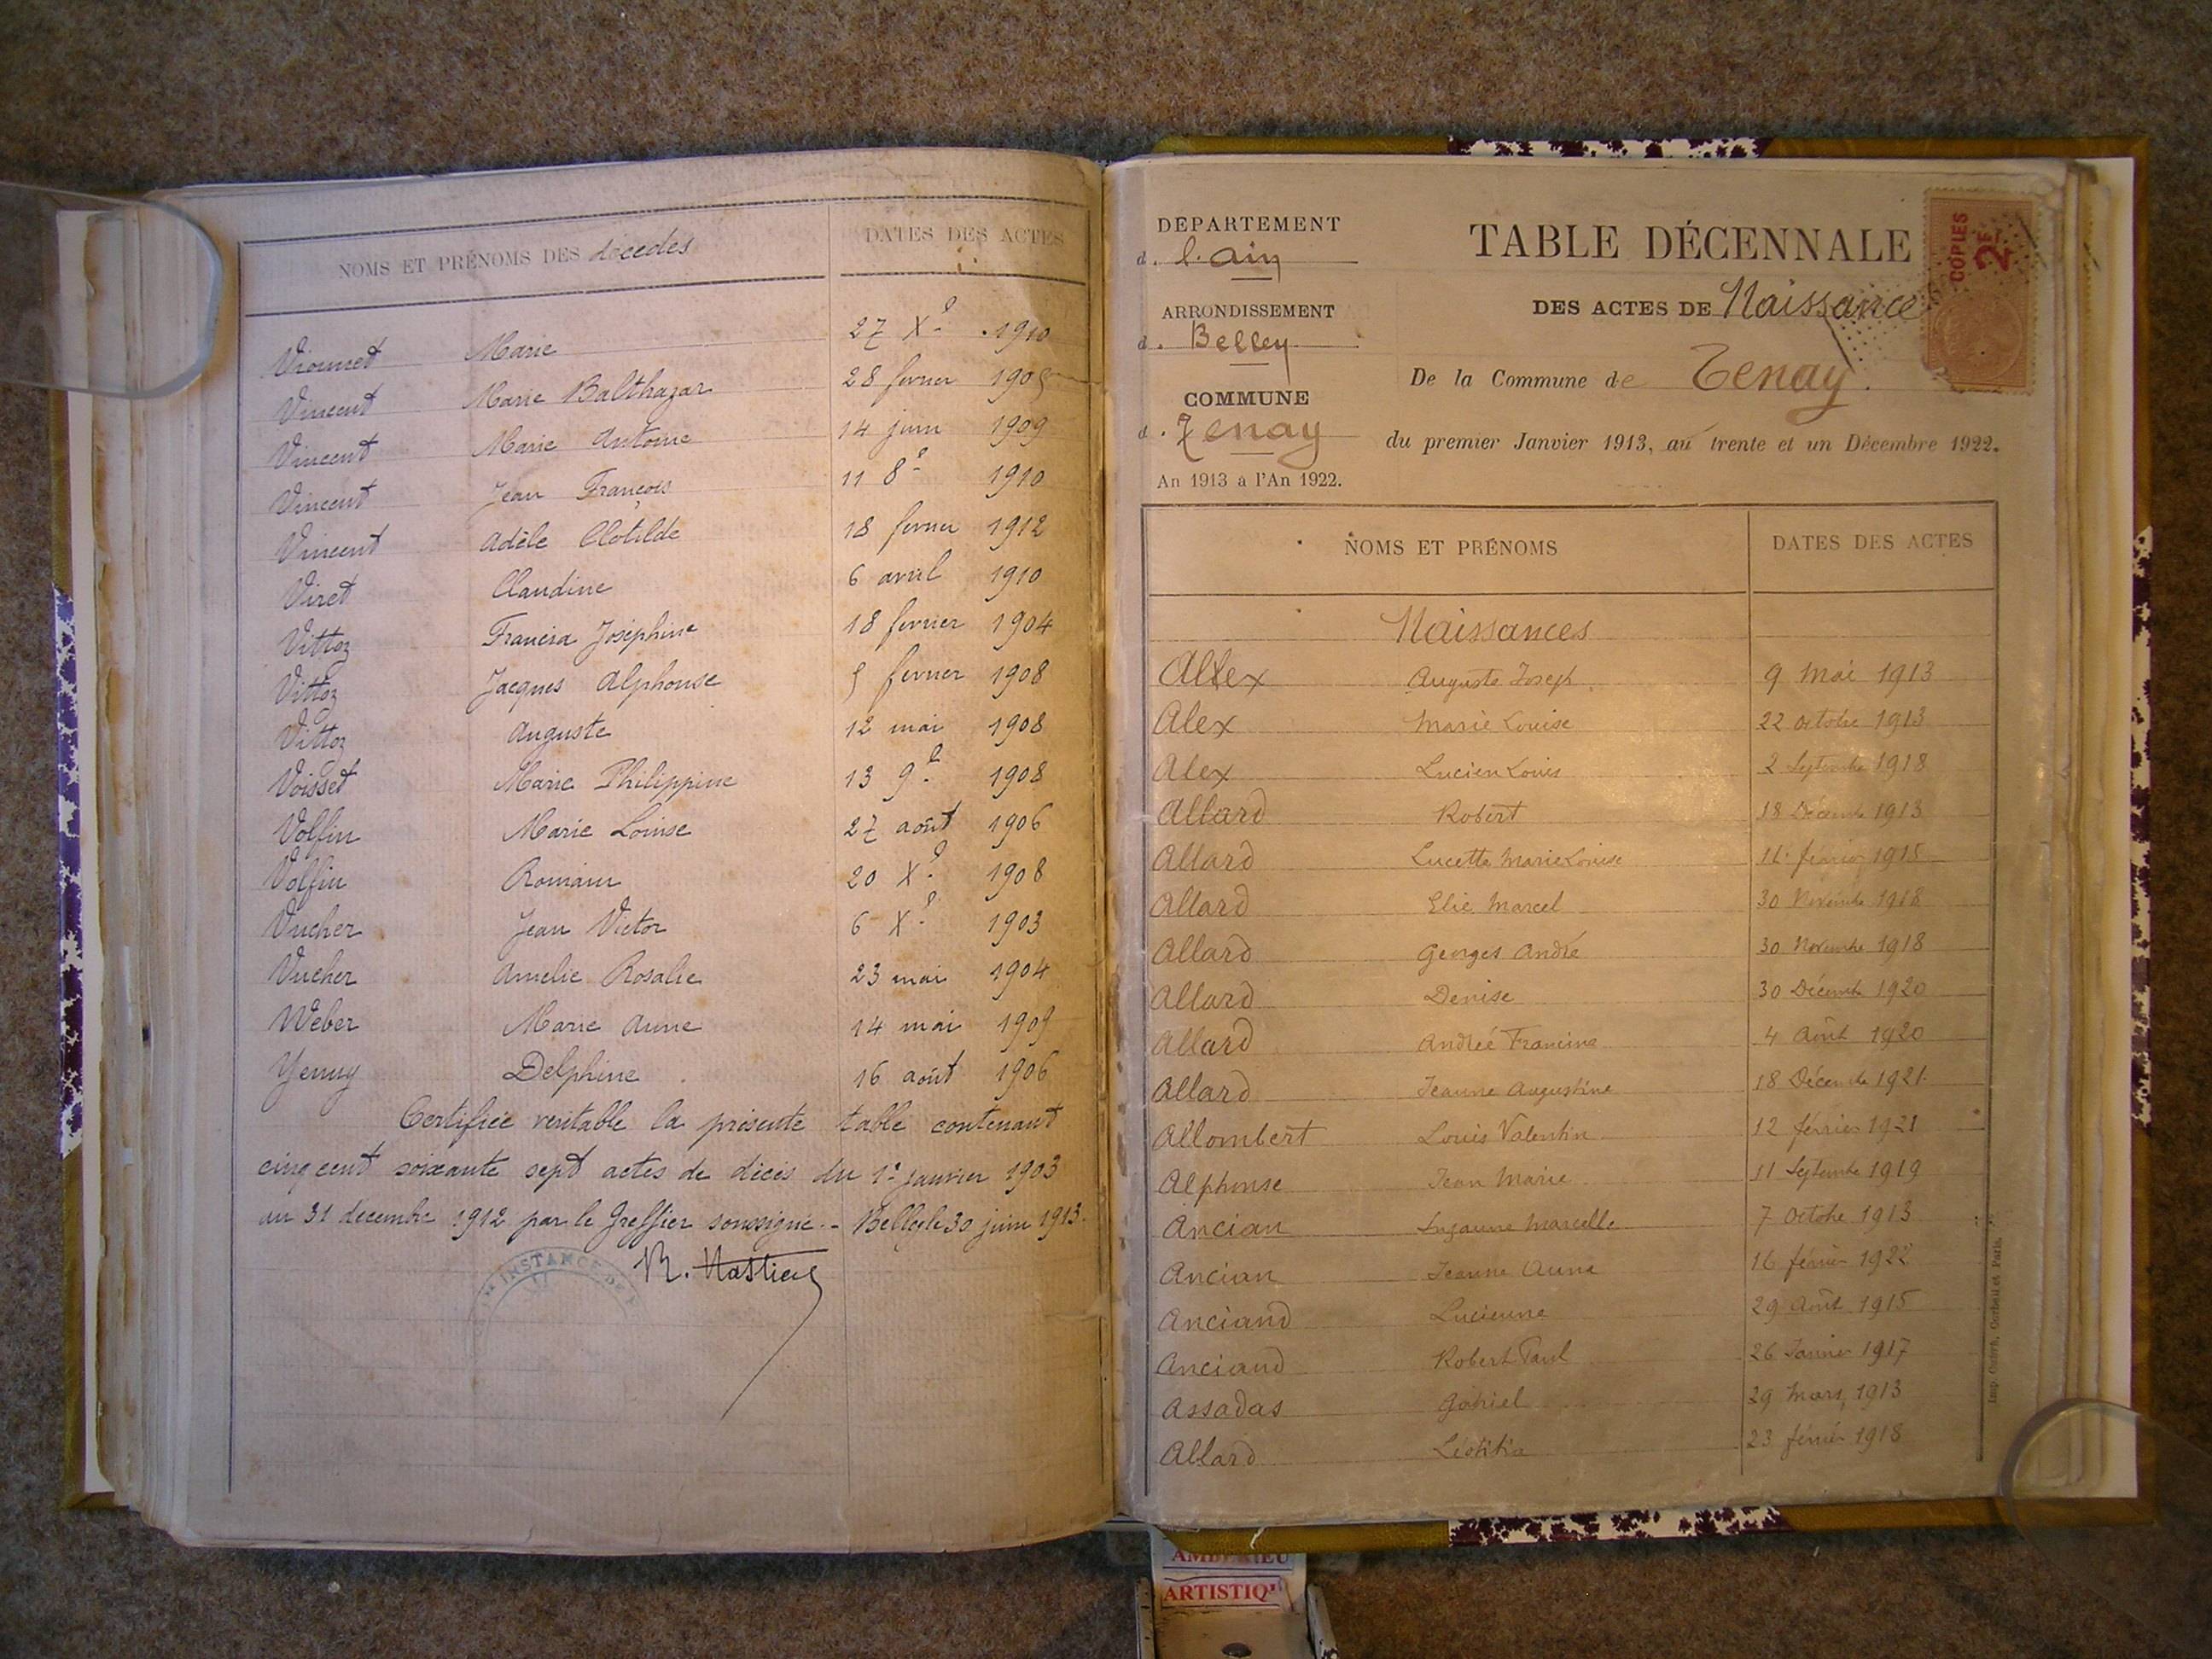 NOMS ET PRÉNOMS DES décédés DATES DES ACTES
Marie 27 Xe 1910
Vincent Marie Balthazar 28 fevrier
Vincent Marie Antoine 14 juin 1909
Vincent Jean François 11 8e 1910
Vincent Adèle Clotilde 18 fevrier 1912
Viret Claudine 6 avril 1910
Vittoz Francisa Joséphine 18 fevrier 1904
Vittoz Jacques Alphonse 5 fevrier 1908
Vittoz Auguste 12 mai 1908
Voisset Marie Philippine 13 9e 1908
Volfin Marie Louise 27 août 1906
Volfin Romain 20 Xe 1908
Vucher Jean Victor 6 Xe 1903
Vucher Amelie Rosalie 23 mai 1904
Weber Marie Anne 14 mai 1909
Delphine 16 août 1906
Certifiée veritable la présente table contenant
cinq cent soixante sept actes de décès du 1er janvier 1903
au 31 decembre 1912 par le Greffier soussigné. - Belley le 30 juin 1913.
INSTANCE DE
DÉPARTEMENT
d. l'Ain
ARRONDISSEMENT
d. Belley
COMMUNE
d. Tenay
An 1913 à l'An 1922.
TABLE DÉCENNALE
DES ACTES DE Naissance
De la Commune de Tenay.
du premier Janvier 1913, au trente et un Décembre 1922.
COPIES
2F
NOMS ET PRÉNOMS DATES DES ACTES
Naissances
Auguste Joseph 9 Mai 1913
Alex Marie Louise 22 octobre 1913
Alex Lucien Louis 2 Septembre 1918
Allard Robert 18 Décembre 1913
Allard Lucette Marie Louise février 1915
Allard Elie Marcel 30 Novembre 1918
Allard Georges André 30 Novembre 1918
Allard Denise 30 Décembre 1920
Allard Andrée Francine 4 Août 1920
Allard Jeanne Augustine 18 Décembre 1921
Allombert Louis Valentin 12 février 1921
Alphonse Jean Marie 11 Septembre 1919
Ancian Suzanne Marcelle 7 Octobre 1913
Ancian Jeanne Anna 16 février 1922
Anciand Lucienne 29 Août 1915
Anciand Robert Paul 26 Janvier 1917
Assadas Gabriel 29 Mars 1913
Allard Léotitia 23 février 1918
AMBERIEU
ARTISTIQ